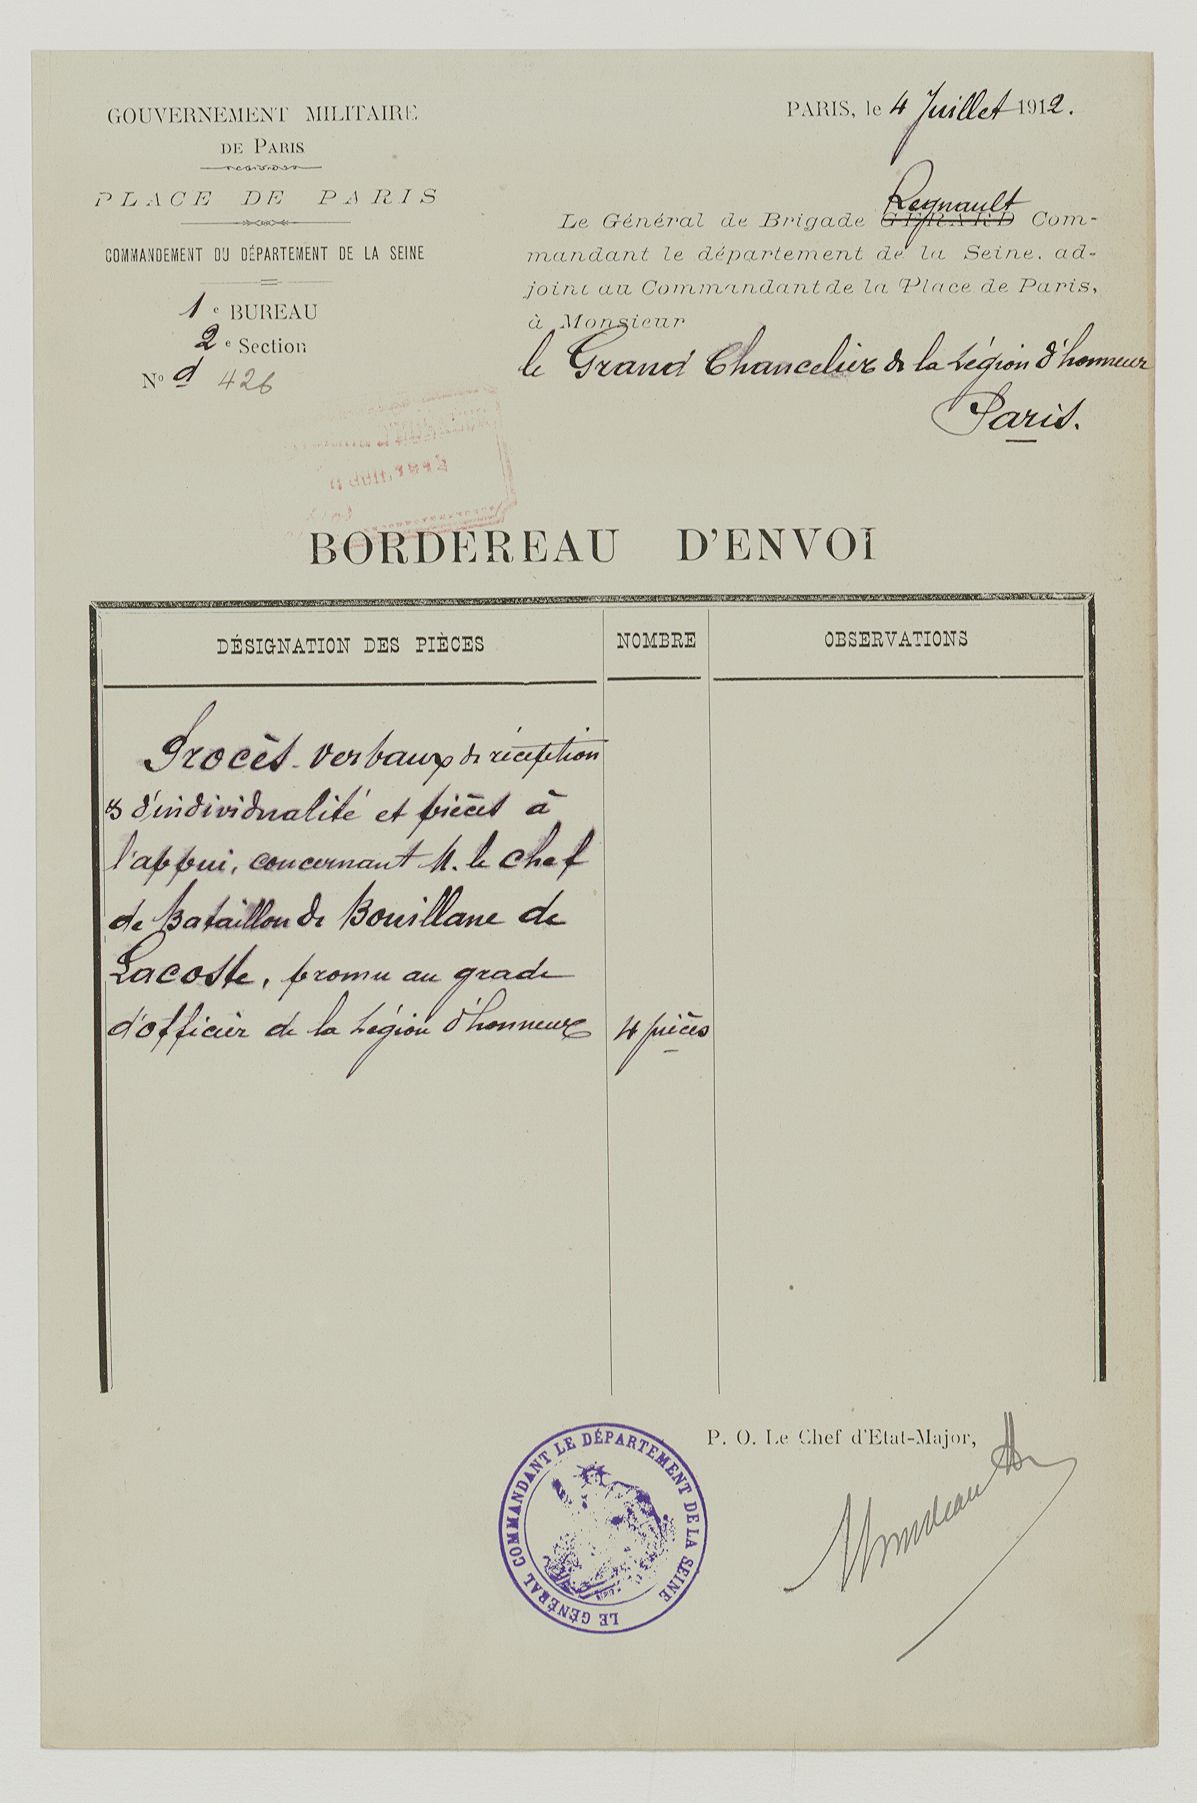 GOUVERNEMENT MILITAIRE
DE PARIS
PLACE DE PARIS
COMMANDEMENT DU DÉPARTEMENT DE LA SEINE
1e BUREAU
2e Section
No d 426
PARIS, le 4 Juillet 1912.
Regnault
Le Général de Brigade GIRARD Com-
mandant le département de la Seine, ad-
joint au Commandant de la Place de Paris,
à Monsieur
le Grand Chancelier de la Légion d'honneur
Paris.
JUIL 1912
BORDEREAU D'ENVOI
DÉSIGNATION DES PIÈCES
NOMBRE
OBSERVATIONS
Procès-verbaux de réception
& d'individualité et pièces à
l'appui, concernant M. le Chef
de Bataillon de Bouillane de
Lacoste, promu au grade
d'officier de la Légion d'honneur
4 pièces
P. O. Le Chef d'Etat-Major,
LE GÉNÉRAL COMMANDANT LE DÉPARTEMENT DE LA SEINE